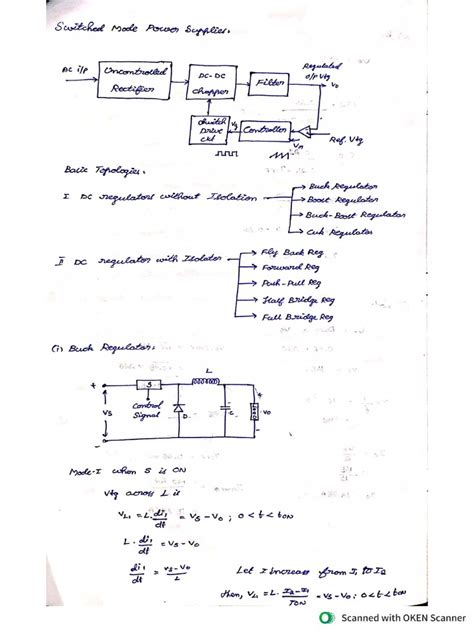 Switched Mode Power Supplies.
AC i/p
Uncontrolled Rectifier
DC-DC chopper
Filter
Regulated
O/P Vtg
Vo
Switch Drive ckt
Vg
Controller
Ref. Vtg
Basic Topologies.
I DC regulators without Isolation
Buck Regulator
Boost Regulator
Buck-Boost Regulator
Cuk Regulator
II DC regulator with Isolator
Fly Back Reg
Forward Reg
Push-Pull Reg
Half Bridge Reg
Full Bridge Reg
(i) Buck Regulator.
L
+ S +
Control Signal
Vs
D
C
Vo
-
Mode-I when S is ON
Vtg across L is
VL1 = L. di1/dt = Vs - Vo ; 0<t<tON
L. di1/dt = Vs - Vo
di1/dt = Vs-Vo/L
Let I increase from I1 to I2
then, VL = L. I2-I1/TON = Vs-Vo ; 0<t<tON
Scanned with OKEN Scanner